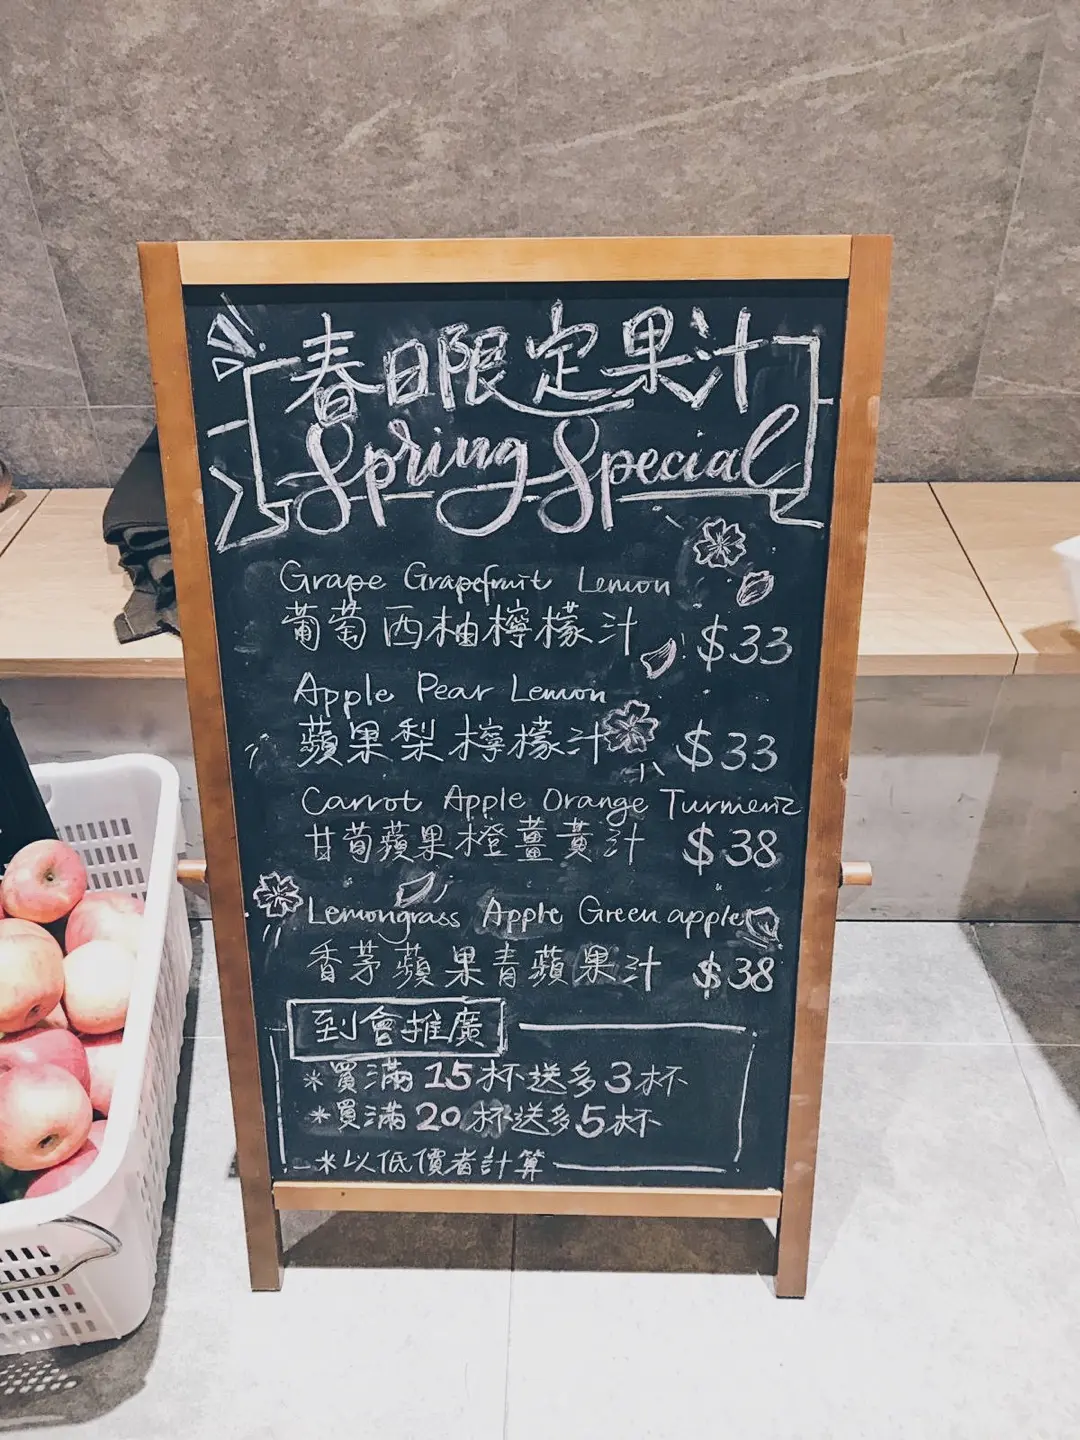 春日限定果汁
Spring Special
Grape Grapefruit Lemon
葡萄西柚檸檬汁 $33
Apple Pear Lemon
蘋果梨檸檬汁 $33
Carrot Apple Orange Turmeric
甘荀蘋果橙薑黃汁 $38
Lemongrass Apple Green apple
香茅蘋果青蘋果汁 $38
到會推廣
*買滿15杯送多3杯
*買滿20杯送多5杯
*以低價者計算